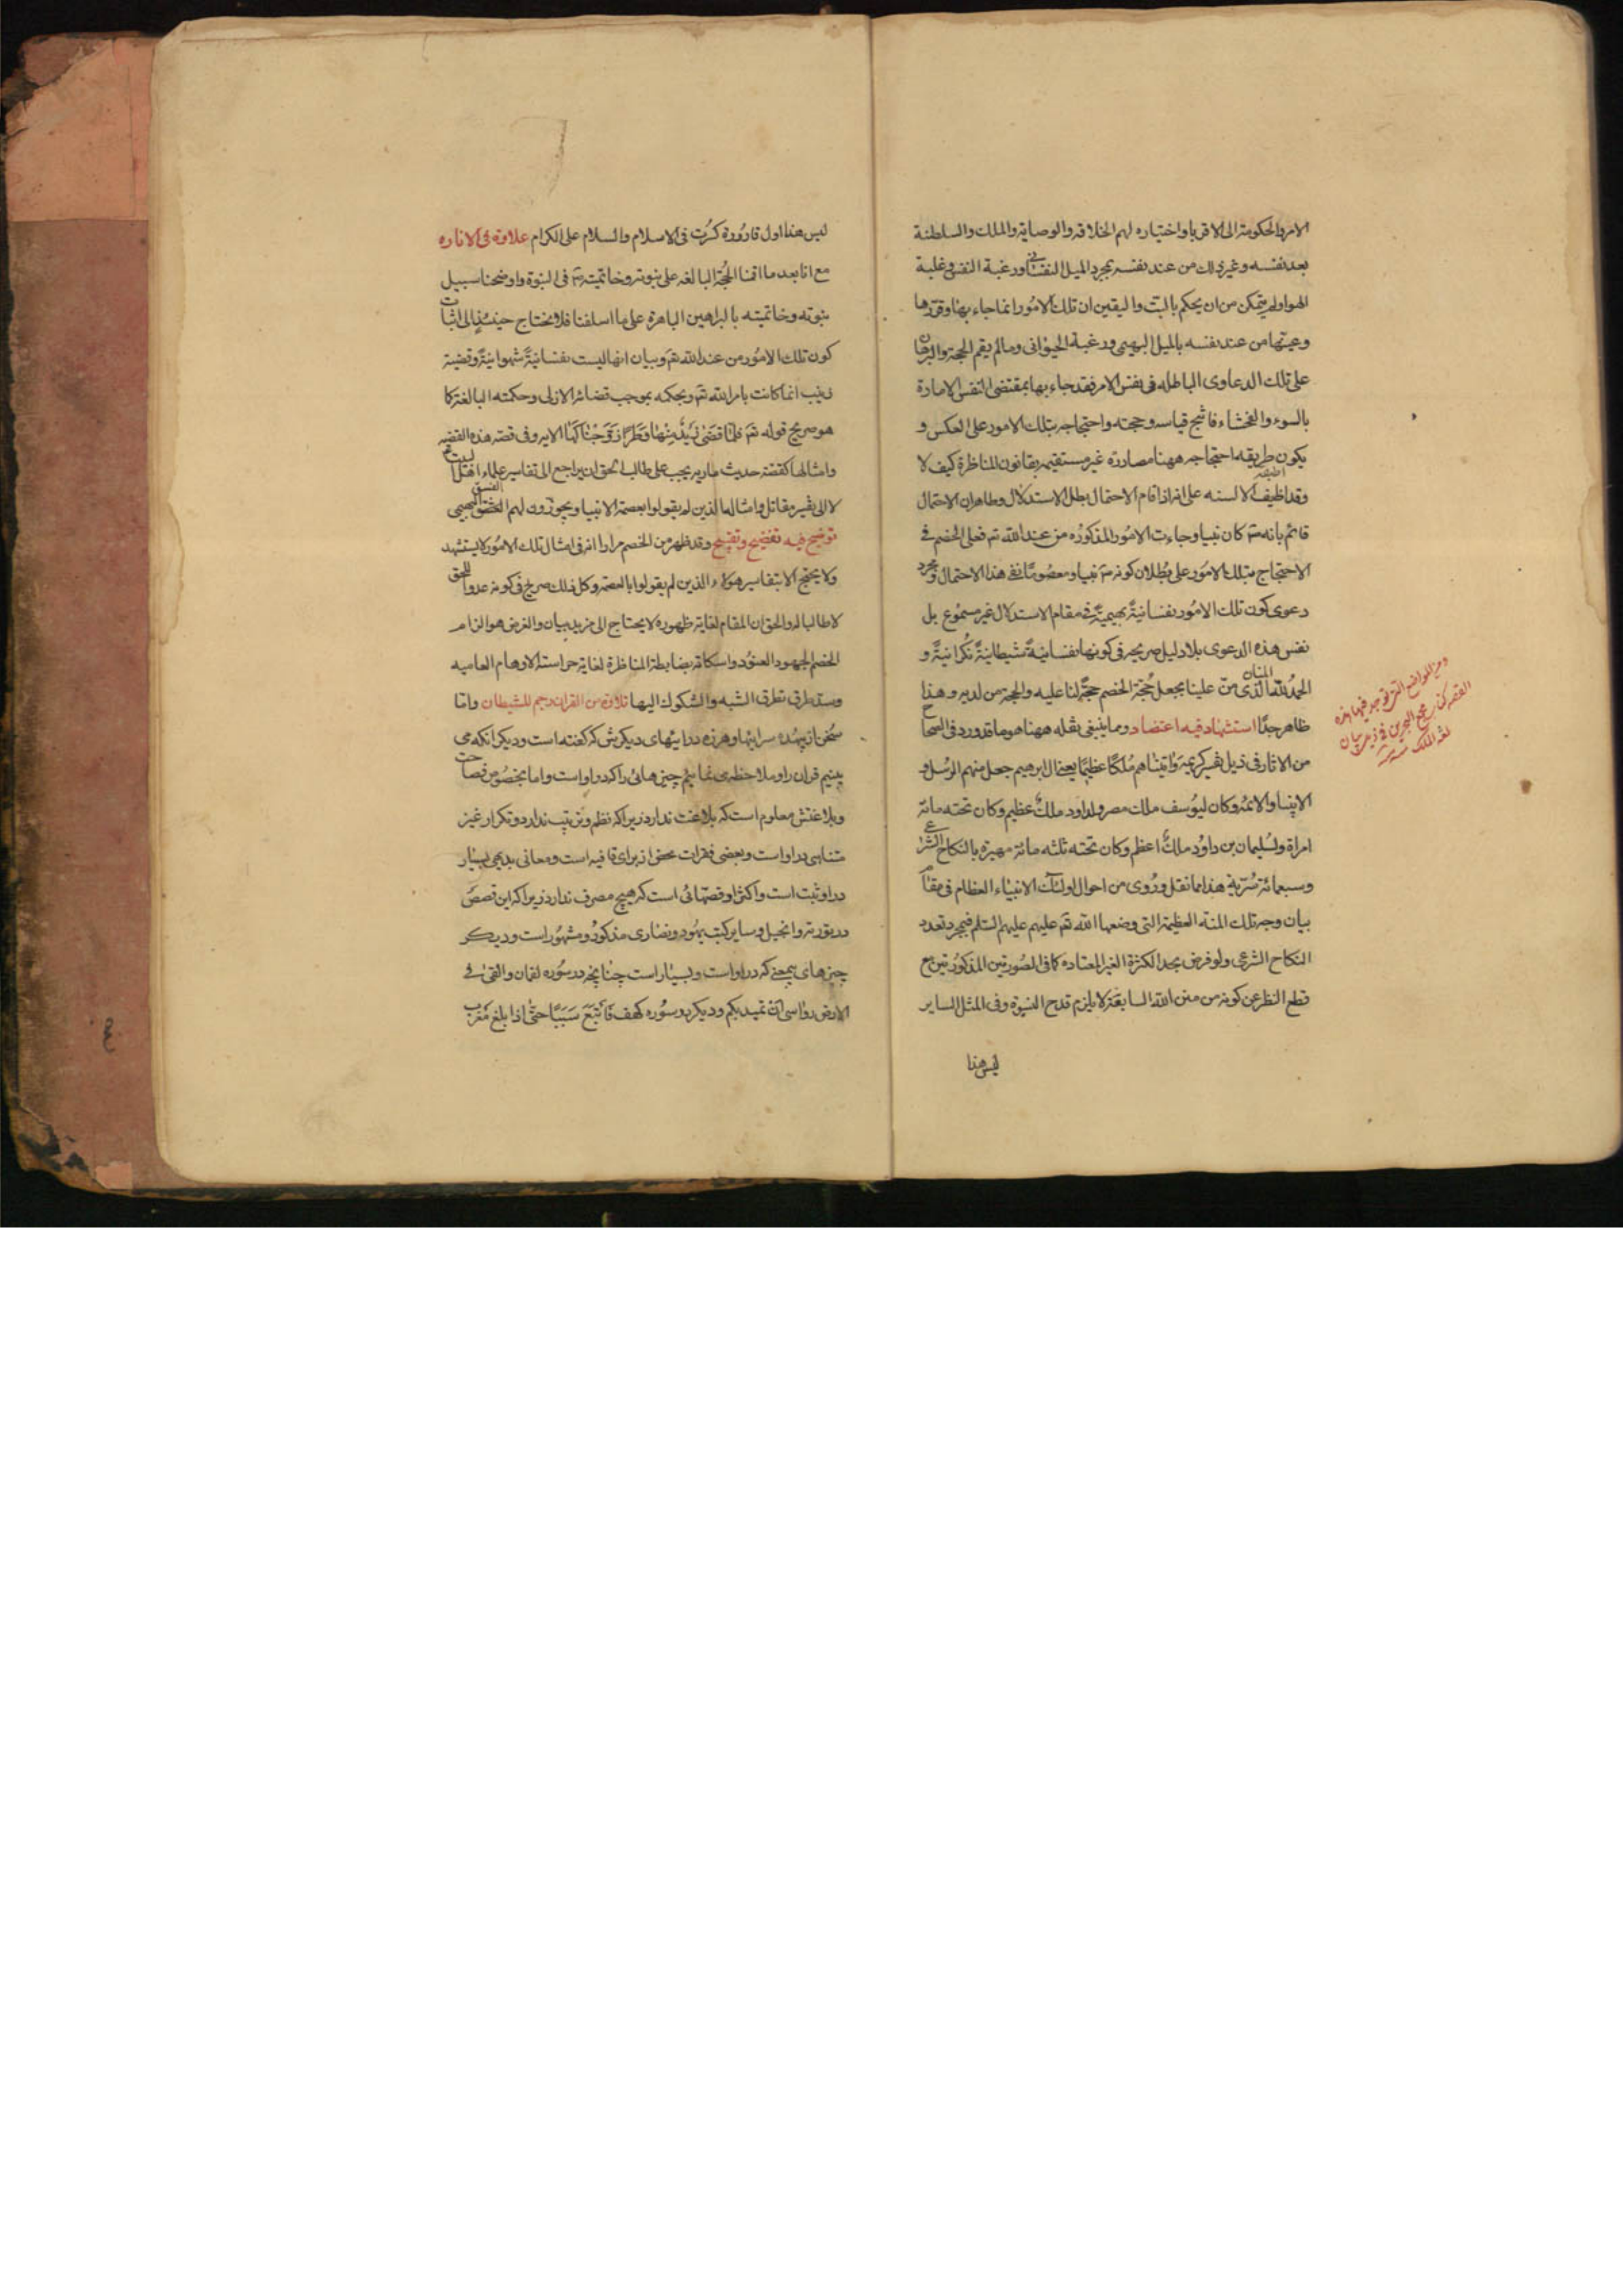 الامر والحكومة الى الاقرباء واختياره لهم الخلافه والوصاية والملك والسلطنة
بعد نفسه وغير ذلك من عند نفسه بمجرد الميل النفسانى ورغبة النفس وغلبة
الهوا ولم يتمكن من ان يحكم بالبت واليقين ان تلك الامور انما جاء بها وقررها
وعينها من عند نفسه بالميل البهيمى ورغبة الحيوانى ومالم يقم الحجة والبرهان
على تلك الدعاوى الباطله فى نفس الامر فقد جاء بها بمقتضى النفس الامارة
بالسوء والفحشاء فانتج قياسه وحجته واحتجاجه بتلك الامور على العكس و
يكون طريقه احتجاجه ههنا مصادرة غير مستقيمه بقانون المناظرة كيف لا
وقد الالسنه على انه اذا قام الاحتمال بطل الاستدلال وظاهر ان الاحتمال
قائم بانه كان نبيا وجاءت الامور المذكوره من عند الله تع فعلى الخصم فى
الاحتجاج بتلك الامور على بطلان كونه نبيا ومعصوما نفى هذا الاحتمال وبمجرد
دعوى كون تلك الامور نفسانية بهيمية فى مقام الاستدلال غير مسموع بل
نفس هذه الدعوى بلا دليل صريحه فى كونها نفسانية شيطانية نكرانية و
الحمد لله المنان الذى من علينا بجعل حجة الخصم حجة لنا عليه والحجة من لديه وهذا
ظاهر جدا استشهاد فيه اعتضاد ومما ينبغى نقله ههنا هو ما قد ورد فى الصحاح
من الاثار فى ذيل تفسير كريمة واتيناهم ملكا عظيما يعنى ال ابرهيم جعل منهم الرسل و
الانبياء والائمه وكان ليوسف ملك مصر ولداود ملك عظيم وكان تحته مائة
امراة ولسليمان بن داود ملك اعظم وكان تحته ثلثه مائة مهيرة بالنكاح الشرعى
وسبعمائة سرية هذا ما نقل وروى من احوال اولئك الانبياء العظام فى مقام
بيان وجه تلك المنه العظيمة التى وضعها الله تع عليهم عليهم السلم فبمجرد تعدد
النكاح الشرعى ولو فرض بحد الكثرة الغير المعتاده كما فى الصورتين المذكورتين مع
قطع النظر عن كونه من منن الله السابقة لا يلزم قدح النبوة وفى المثل الساير
ليس هذا
ومن المواضع التى توجد فيها هذه
القصه كتاب مجمع البحرين فى ذيل بيان
لغه الملك منه
ليس هذا اول قارورة كسرت فى الاسلام والسلام على الكرام علاوة فى الاناره
مع انا بعد ما اقمنا الحجة البالغه على نبوته وخاتميته فى النبوة واوضحنا سبيل
نبوته وخاتميته بالبراهين الباهرة على ما اسلفنا فلا نحتاج حينئذ الى اثبات
كون تلك الامور من عند الله تع وبيان انها ليست نفسانية شهوانية وقضية
زينب انما كانت بامر الله تع وبحكمه بموجب قضائه الازلى وحكمته البالغة كما
هو صريح قوله تع فلما قضى زيد منها وطرا زوجناكها الايه وفى قصه هذه القضيه
وامثالها كقصة حديث ماريه يجب على طالب الحق ان يراجع الى تفاسير علماء
لا الى تفسير مقاتل وامثالها الذين لم يقولوا بعصمة الانبيا ويجوزون لهم الفسق البهيمى
توضيح فيه تفضيح وتقبيح وقد ظهر من الخصم مرارا انه فى امثال تلك الامور لا يستشهد
ولا يحتج الا بتفاسير هؤلاء الذين لم يقولوا بالعصمة وكل ذلك صريح فى كونه عدوا للحق
لا طالبا له والحق ان المقام لغاية ظهوره لا يحتاج الى مزيد بيان والغرض هو الزام
الخصم الجهود العنود واسكاته بضابطة المناظرة لغاية حراسة الاوهام العاميه
وسد طرق تطرق الشبه والشكوك اليها تلاوة من القران رجم للشيطان واما
سخن از بيهده سرايها وهرزه درايهاى ديكرش كه كفته است وديكر انكه مى
بينيم قران را وملاحظه مى نمائيم چيزهائى را كه در او است واما بخصوص فصاحت
وبلاغتش معلوم است كه بلاغت ندارد زيرا كه نظم وترتيب ندارد وتكرار غير
متناهى در او است وبعضى فقرات محض از براى قافيه است ومعانى بديهى بسيار
در او ثبت است واكثر او قصهائى است كه هيچ مصرف ندارد زيرا كه اين قصص
در تورته وانجيل وساير كتب يهود ونصارى مذكور ومشهور است وديكر
چيزهاى بيمعنى كه در او است وبسيار است چنانچه در سوره لقمان والقى فى
الارض رواسى ان تميد بكم وديكر در سوره كهف فاتبع سببا حتى اذا بلغ مغرب